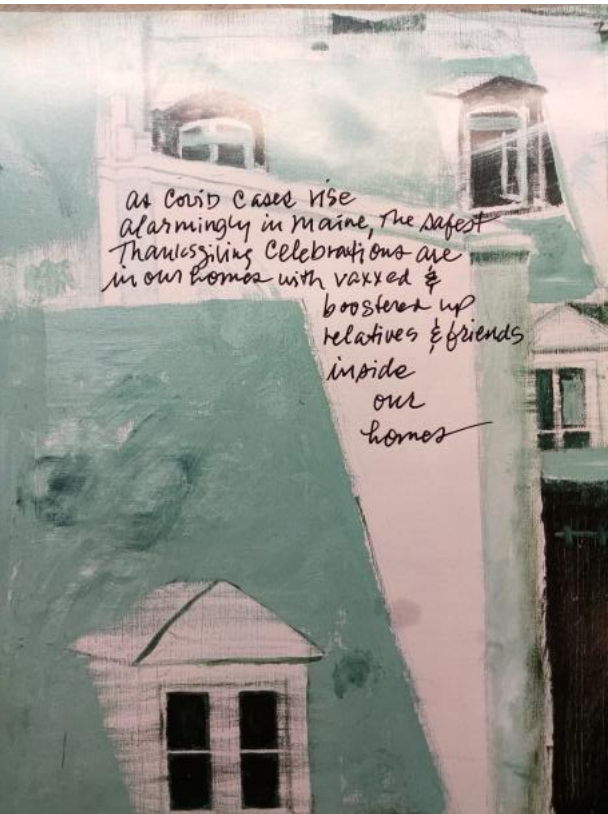 as Covid cases rise
alarmingly in Maine, the safest
Thanksgiving Celebrations are
in our homes with vaxxed &
boostered up
relatives & friends
inside
our
homes